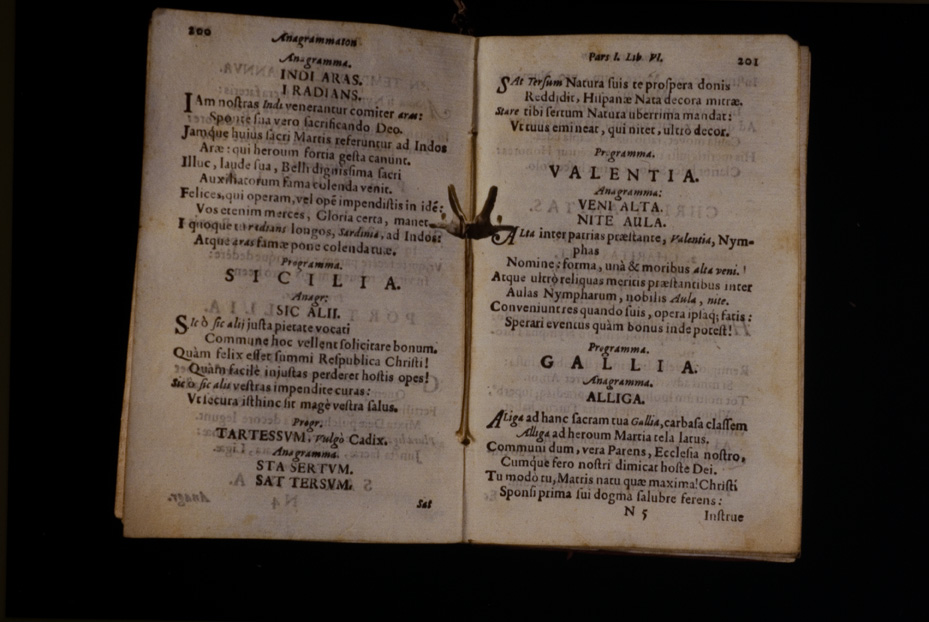 200
Anagrammaton
Anagramma.
INDI ARAS.
I RADIANS.
IAm nostras Indi venerantur comiter aras:
Sponte sua vero sacrificando Deo.
Jamque huius sacri Martis referuntur ad Indos
Aræ: qui heroum fortia gesta canunt.
Illuc, laude sua, Belli dignissima sacri
Auxiliatorum fama colenda venit.
Felices, qui operam, vel opē impendistis in idē:
Vos etenim merces, Gloria certa, manet.
I quoque to radians longos, Sardinia, ad Indos:
Atque aras famæ pone colenda tuæ.
Programma.
SICILIA.
Anagr:
SIC ALII.
SIc ô sic alii justa pietate vocati
Commune hoc vellent solicitare bonum.
Quàm felix esset summi Respublica Christi!
Quàm facilè injustas perderet hostis opes!
Sic ô sic alii vestras impendite curas:
Vt secura isthinc sit magè vestra salus.
Progr.
TARTESSVM, Vulgò Cadix.
Anagramma.
STA SERTVM.
SAT TERSVM.
Sat
Pars I. Lib. VI.
201
SAt Tersum Natura suis te prospera donis
Reddidit, Hispanæ Nata decora mitræ.
Stare tibi sertum Natura uberrima mandat:
Vt tuus emineat, qui nitet, ultrò decor.
Programma.
VALENTIA.
Anagramma:
VENI ALTA.
NITE AULA.
ALta inter patrias præstante, Valentia, Nym-
phas
Nomine: forma, unà & moribus alta veni.
Atque ultrò reliquas meritis præstantibus inter
Aulas Nympharum, nobilis Aula, nite.
Conveniunt res quando suis, opera ipsaq; fatis:
Sperari eventus quàm bonus inde potest!
Programma.
GALLIA.
Anagramma.
ALLIGA.
ALliga ad hanc sacram tua Gallia, carbasa classem
Alliga ad heroum Martia tela latus.
Communi dum, vera Parens, Ecclesia nostro,
Cumque fero nostri dimicat hoste Dei.
Tu modò tu, Matris natu quæ maxima! Christi
Sponsi prima sui dogma salubre ferens:
N 5
Instrue